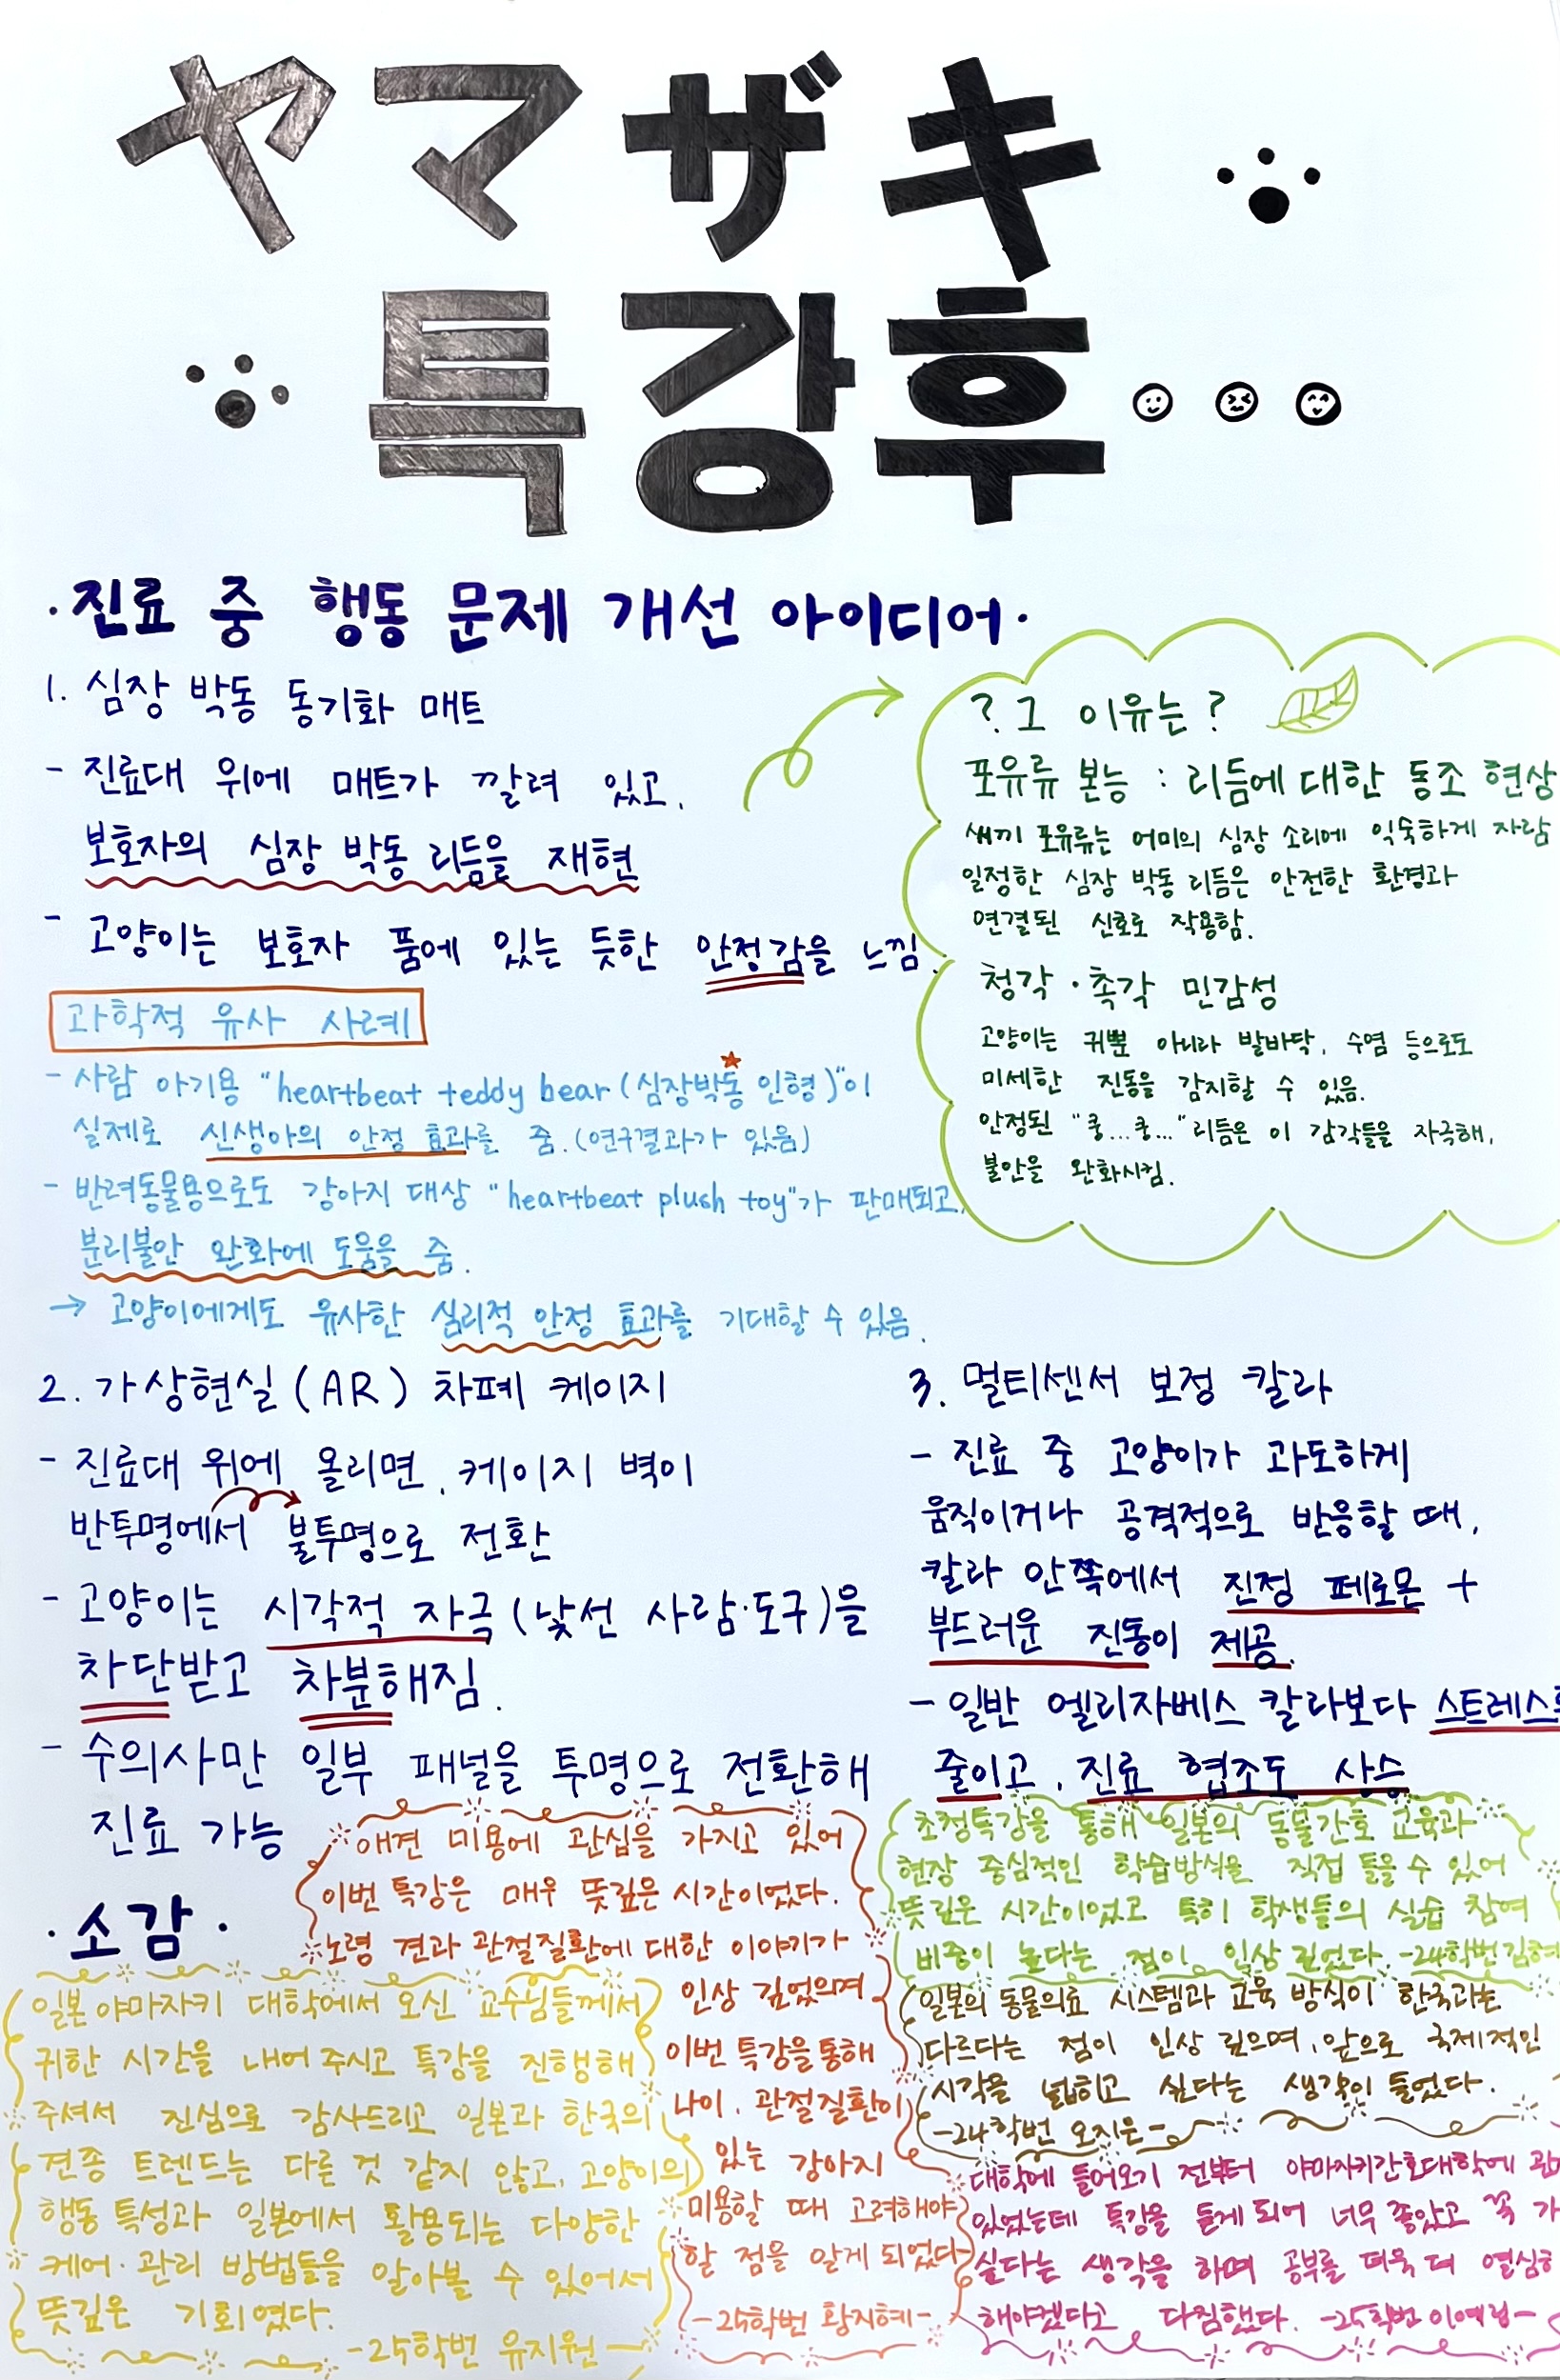 ヤマザキ
특강후
·진료 중 행동 문제 개선 아이디어·
1. 심장 박동 동기화 매트
- 진료대 위에 매트가 깔려 있고,
보호자의 심장 박동 리듬을 재현
- 고양이는 보호자 품에 있는 듯한 안정감을 느낌.
?그 이유는?
포유류 본능 : 리듬에 대한 동조 현상
새끼 포유류는 어미의 심장 소리에 익숙하게 자람
일정한 심장 박동 리듬은 안전한 환경과
연결된 신호로 작용함.
청각·촉각 민감성
고양이는 귀뿐 아니라 발바닥, 수염 등으로도
미세한 진동을 감지할 수 있음.
안정된 "쿵...쿵..." 리듬은 이 감각들을 자극해,
불안을 완화시킴.
과학적 유사 사례
- 사람 아기용 "heartbeat teddy bear (심장박동 인형)"이
실제로 신생아의 안정 효과를 줌. (연구결과가 있음)
- 반려동물용으로도 강아지 대상 "heartbeat plush toy"가 판매되고,
분리불안 완화에 도움을 줌.
→ 고양이에게도 유사한 심리적 안정 효과를 기대할 수 있음.
2. 가상현실 (AR) 차폐 케이지
- 진료대 위에 올리면, 케이지 벽이
반투명에서 불투명으로 전환
- 고양이는 시각적 자극 (낯선 사람·도구)을
차단받고 차분해짐.
- 수의사만 일부 패널을 투명으로 전환해
진료 가능
3. 멀티센서 보정 칼라
- 진료 중 고양이가 과도하게
움직이거나 공격적으로 반응할 때,
칼라 안쪽에서 진정 페로몬 +
부드러운 진동이 제공.
- 일반 엘리자베스 칼라보다 스트레스를
줄이고, 진료 협조도 상승
·소감·
일본 야마자키 대학에서 오신 교수님들께서
귀한 시간을 내어 주시고 특강을 진행해
주셔서 진심으로 감사드리고 일본과 한국의
견종 트렌드는 다른 것 같지 않고, 고양이의
행동 특성과 일본에서 활용되는 다양한
케어·관리 방법들을 알아볼 수 있어서
뜻깊은 기회였다.
-25학번 유지원-
애견 미용에 관심을 가지고 있어
이번 특강은 매우 뜻깊은 시간이었다.
노령 견과 관절질환에 대한 이야기가
인상 깊었으며
이번 특강을 통해
나이, 관절질환이
있는 강아지
미용할 때 고려해야
할 점을 알게 되었다
-25학번 황지혜-
초청특강을 통해 일본의 동물간호 교육과
현장 중심적인 학습방식을 직접 들을 수 있어
뜻깊은 시간이었고 특히 학생들의 실습 참여
비중이 높다는 점이 인상 깊었다. -24학번 김혜
일본의 동물의료 시스템과 교육 방식이 한국과는
다르다는 점이 인상 깊으며, 앞으로 국제적인
시각을 넓히고 싶다는 생각이 들었다.
-24학번 오지은-
대학에 들어오기 전부터 야마자키간호대학에 관
있었는데 특강을 듣게 되어 너무 좋았고 꼭 가
싶다는 생각을 하며 공부를 더욱 더 열심히
해야겠다고 다짐했다. -25학번 이예림-